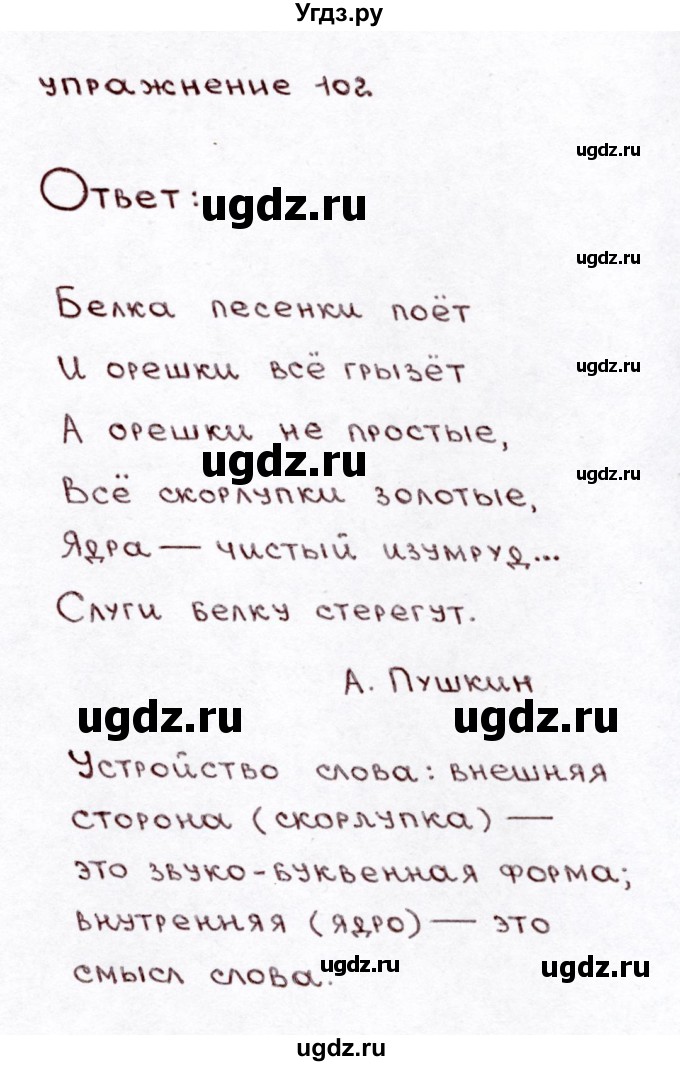 Угдз.ру
упражнение 102
ugdz.ru
Ответ:
ugdz.ru
ugdz.ru
Белка песенки поёт
И орешки всё грызёт
ugdz.ru
А орешки не простые,
ugdz.ru
ugdz.ru
Всё скорлупки золотые,
Ядра — чистый изумруд...
Слуги белку стерегут.
А. Пушкин
ugdz.ru
ugdz.ru
Устройство слова: внешняя
сторона (скорлупка) —
это звуко-буквенная форма;
внутренняя (ядро) — это
смысл слова.
ugdz.ru
ugdz.ru
ugdz.ru